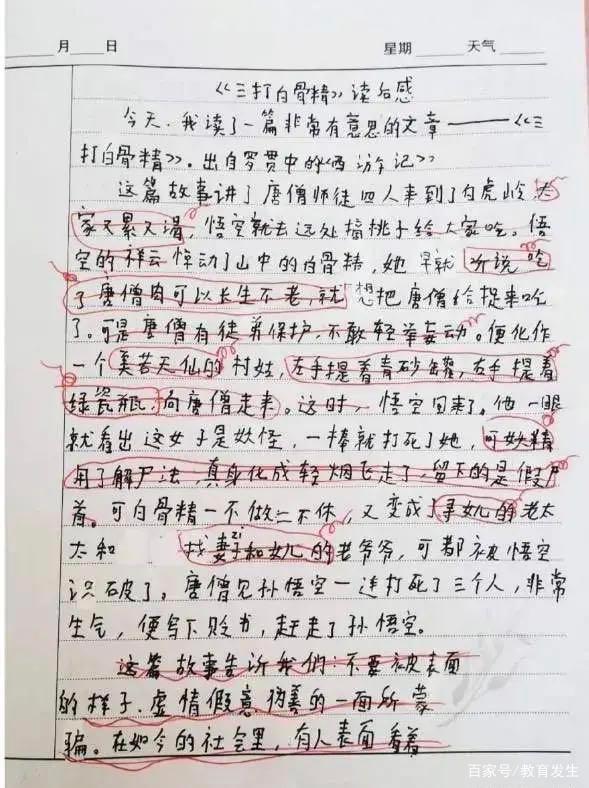 月 日 星期 天气
《三打白骨精》读后感
今天,我读了一篇非常有意思的文章——《三
打白骨精》。出自罗贯中的《西游记》
这篇故事讲了唐僧师徒四人来到了白虎岭,大
家又累又渴,悟空就去远处摘桃子给大家吃。悟
空的祥云惊动了山中的白骨精,她早就听说吃
了唐僧肉可以长生不老,就想把唐僧给捉来吃
了。可是唐僧有徒弟保护,不敢轻举妄动。便化作
一个美若天仙的村姑,左手提着青砂罐,右手提着
绿瓷瓶,向唐僧走来。这时,悟空回来了。他一眼
就看出这女子是妖怪,一棒就打死了她,可妖精
用了解尸法,真身化成轻烟飞走了,留下的是假尸
首。可白骨精一不做二不休,又变成了寻女儿的老太
太和 找妻子和女儿的老爷爷,可都被悟空
识破了。唐僧见孙悟空一连打死了三个人,非常
生气,便写下贬书,赶走了孙悟空。
这篇故事告诉我们:不要被表面
的样子、虚情假意伪善的一面所蒙
骗。在如今的社会里,有人表面看着
百家号/教育发生